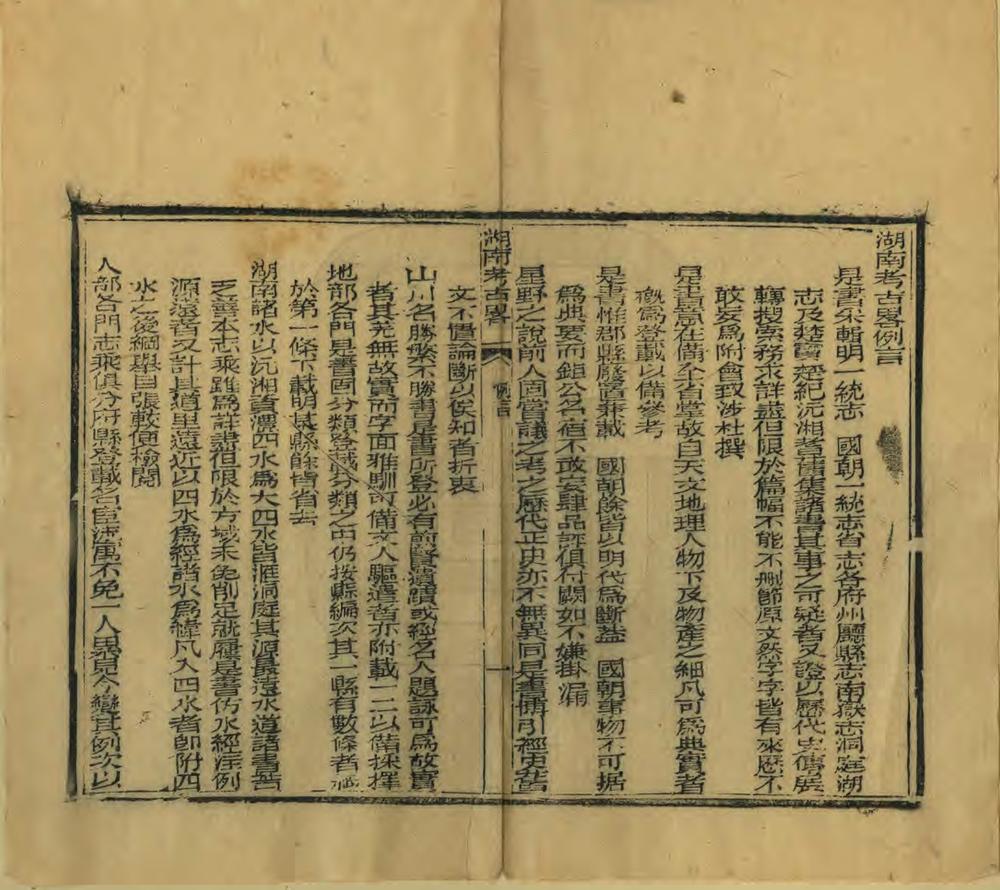 湖南考古畧例言
是書采輯明一統志 國朝一統志省志各府州廳縣志南嶽志洞庭湖
志及楚寶楚紀沅湘耆舊集諸書其事之可疑者又證以歷代史傳展
轉搜索務求詳盡但限於篇幅不能不刪節原文然字字皆有來歷不
敢妄為附會致涉杜撰
是書意在備全省掌故自天文地理人物下及物產之細凡可為典實者
概為登載以備參考
是書惟郡縣廢置兼載 國朝餘皆以明代為斷蓋 國朝事物不可据
為典要而鉅公名宿不敢妄肆品評俱付闕如不嫌掛漏
星野之說前人固嘗議之考之歷代正史亦不無異同是書博引經史舊
湖南考古畧 例言 一
文不置論斷以俟知者折衷
山川名勝繁不勝書是書所登必有前賢遺蹟或經名人題詠可為故實
者其羌無故實而字面雅馴可備文人驅遣者亦附載一二以備採擇
地部各門是書因分類登載分類之中仍按縣編次其一縣有數條者
於第一條下載明某縣餘皆省去
湖南諸水以沅湘資澧四水為大四水皆滙洞庭其源最遠水道諸書苦
乏善本志乘雖為詳盡但限於方域未免削足就履是書仿水經注例
源遠者又計其道里遠近以四水為經諸水為緯凡入四水者即附四
水之後綱舉目張較便檢閱
人部各門志乘俱分府縣登載名宦流寓不免一人累見今變其例次以